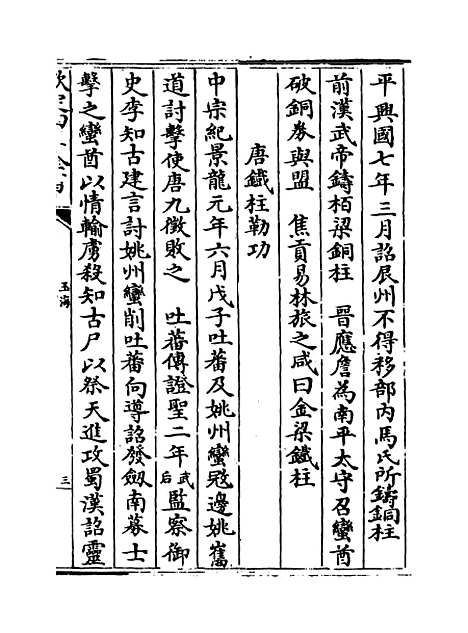 平興國七年三月詔辰州不得移部内馬氏所鑄銅柱
前漢武帝鑄栢梁銅柱　晉應詹為南平太守召蠻酋
破銅券與盟　焦貢易林旅之咸曰金梁鐵柱
唐鐵柱勒功
中宗紀景龍元年六月戊子吐蕃及姚州蠻冦邊姚嶲
道討擊使唐九徵敗之　吐蕃傳證聖二年武后監察御
史李知古建言討姚州蠻削吐蕃向導詔發劒南募士
擊之蠻酋以情輸虜殺知古尸以祭天進攻蜀漢詔靈
玉海
三